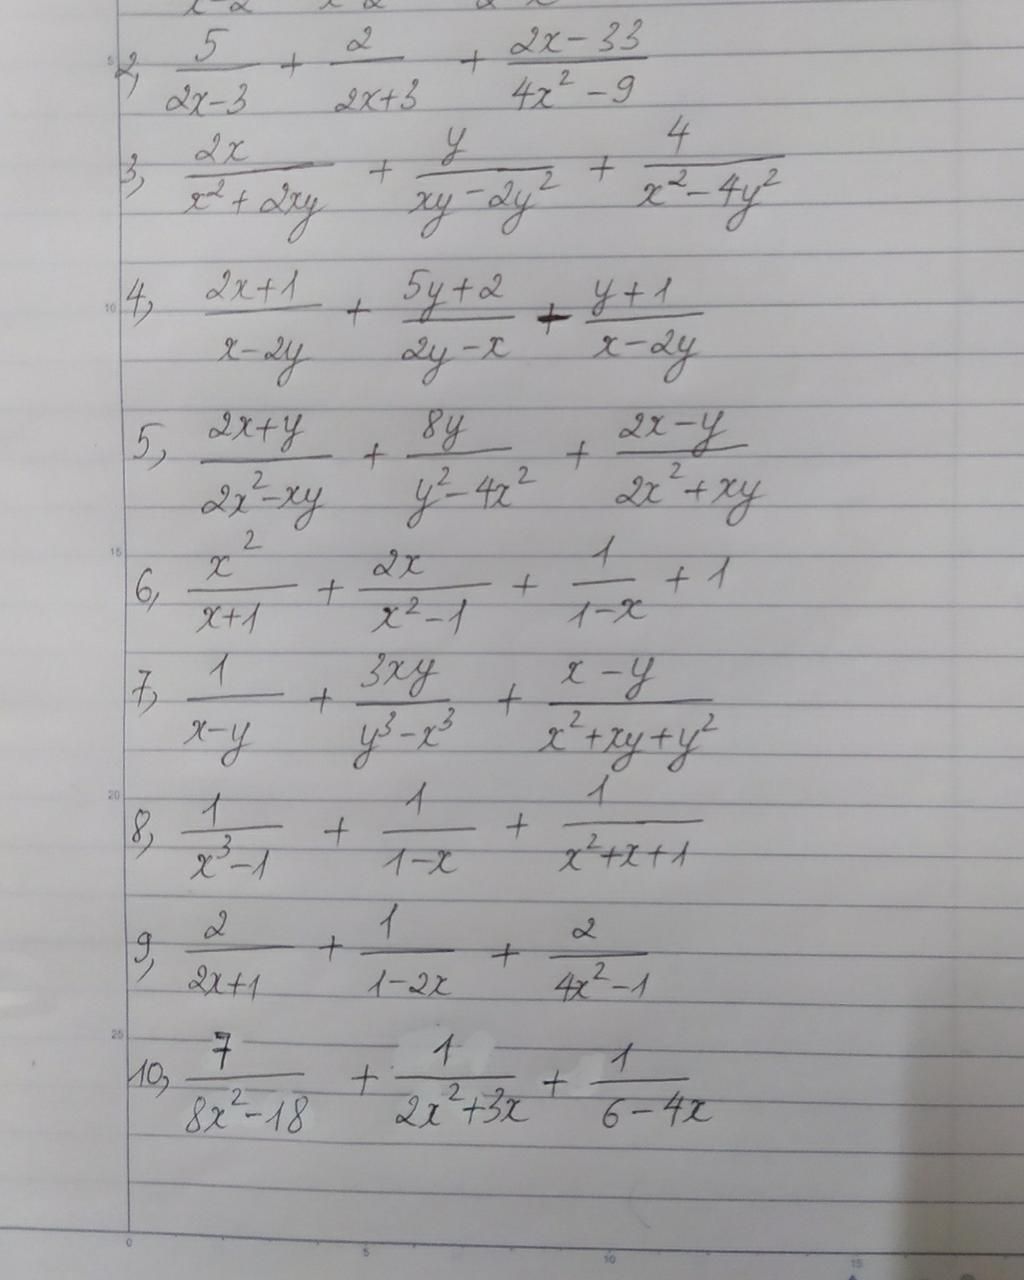 2, 5/(2x-3) + 2/(2x+3) + (2x-33)/(4x²-9)
3, 2x/(x²+2xy) + y/(xy-2y²) + 4/(x²-4y²)
4, (2x+1)/(x-2y) + (5y+2)/(2y-x) + (y+1)/(x-2y)
5, (2x+y)/(2x²-xy) + 8y/(y²-4x²) + (2x-y)/(2x²+xy)
6, x²/(x+1) + 2x/(x²-1) + 1/(1-x) + 1
7, 1/(x-y) + 3xy/(y³-x³) + (x-y)/(x²+xy+y²)
8, 1/(x³-1) + 1/(1-x) + 1/(x²+x+1)
9, 2/(2x+1) + 1/(1-2x) + 2/(4x²-1)
10, 7/(8x²-18) + 1/(2x²+3x) + 1/(6-4x)